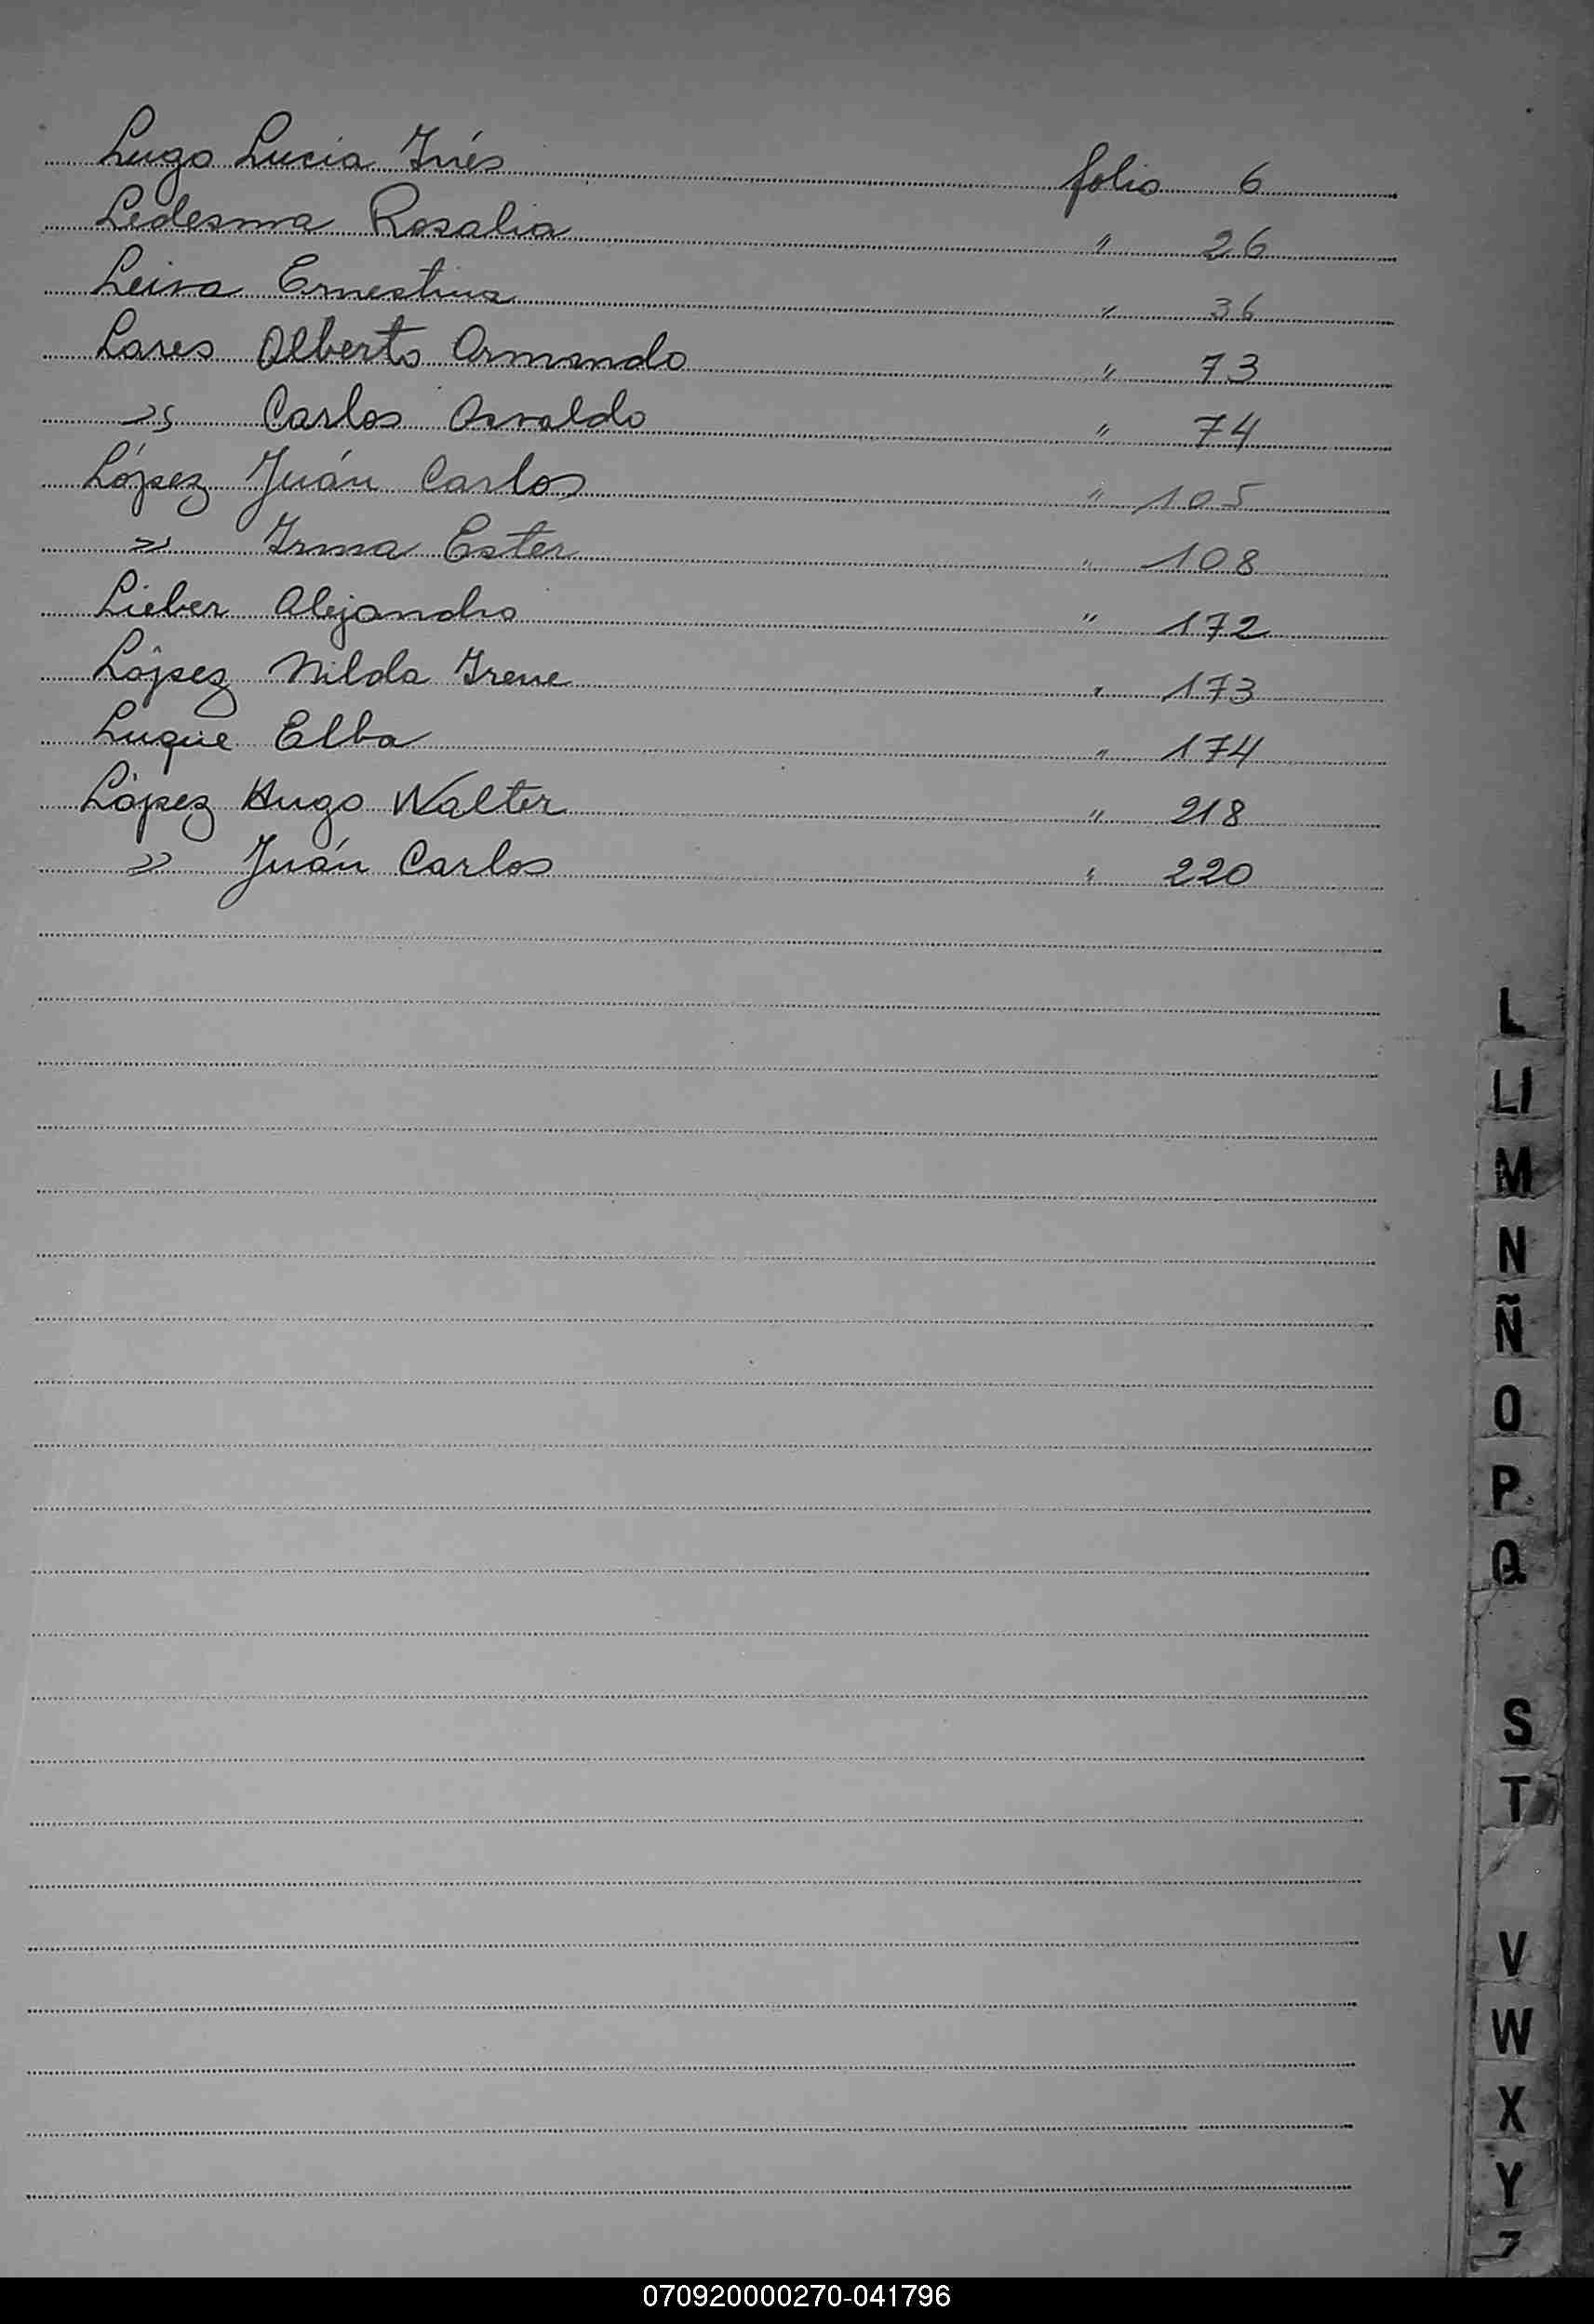 Lugo Lucia Inés folio 6
Ledesma Rosalia " 26
Leiva Ernestina " 36
Lares Alberto Armando " 73
" Carlos Osvaldo " 74
López Juán Carlos " 105
" Irma Ester " 108
Lieber Alejandro " 172
López Nilda Irene " 173
Luque Elba " 174
López Hugo Walter " 218
" Juán Carlos " 220
L
Ll
M
N
Ñ
O
P
Q
S
T
V
W
X
Y
Z
070920000270-041796